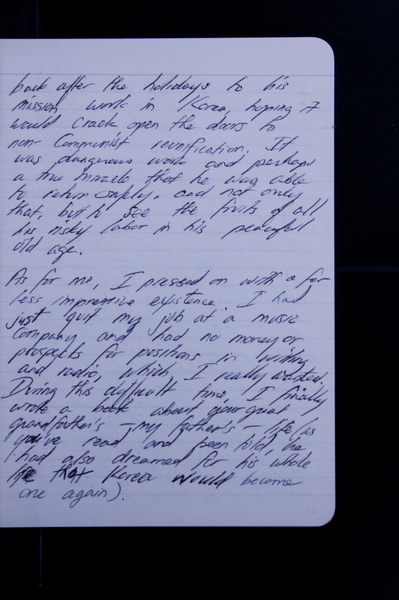 back after the holidays to his
mission work in Korea, hoping it
would crack open the doors to
non-Communist reunification. It
was dangerous work and perhaps
a true miracle that he was able
to return safely, and not only
that, but to see the fruits of all
his risky labor in his peaceful
old age.
As for me, I pressed on with a far
less impressive existence. I had
just quit my job at a music
company and had no money or
prospects for positions in writing
and radio, which I really wanted.
During this difficult time, I finally
wrote a book about your great
grandfather's - my father's - life (as
you've read and been told, he
had also dreamed for his whole
life that Korea would become
one again).